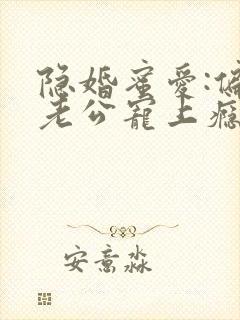 隐婚蜜爱:偏
老公宠上瘾
安意淼